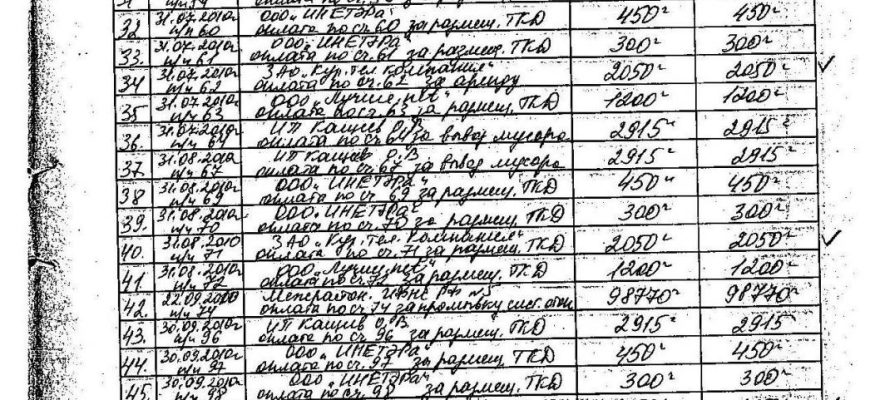 оплата по сч.
32 31.07.2010г ООО „ИНЕТЭРа" 450= 450=
п/п 60 оплата по сч. 60 за размещ. ТКД
33. 31.07.2010г ООО „ИНЕТЭРа" 300= 300=
п/ч 61 оплата по сч. 61 за размещ. ТКД
34 31.07.2010г ЗАО „Кур. тел. компания" 2050= 2050=
п/ч 62 оплата по сч. 62 за аренду
35 31.07.2010г ООО „Лучше. 1200= 1200=
п/ч 63 оплата по сч. 63 за размещ. ТКД
36. 31.07.2010г ИП Кащев О.В 2915= 2915=
п/ч 64 оплата по сч 64 за вывоз мусора
37. 31.08.2010 ИП Кащев О.В 2915= 2915=
п/ч 67 оплата по сч. 67 за вывод мусора
38 31.08.2010г ООО „ИНЕТЭРа" 450= 450=
п/ч 69 оплата по сч 69 за размещ. ТКД
39. 31.08.2010г ООО „ИНЕТЭРа" 300= 300=
п/ч 70 оплата по сч. 70 за размещ. ТКД
40. 31.08.2010 ЗАО „Кур. тел. Компания" 2050= 2050=
п/ч 71 оплата по сч. 71 за размещ. ТКД
41. 31.08.2010г ООО „Лучш. 1200= 1200=
п/ч 72 оплата по сч. 72 за размещ. ТКД
42. 22.09.2010 ИФНС РФ №5 98770= 98770=
п/ч 74 оплата по сч. 74 за промывку сист. отоп
43. 30.09.2010г ИП Кащев О.В 2915= 2915
п/ч 96 оплата по сч. 96 за размещ. ТКД
44. 30.09.2010г ООО „ИНЕТЭРа" 450= 450=
п/ч 97 оплата по сч. 97 за размещ. ТКД
45. 30.09.2010г ООО „ИНЕТЭРа" 300= 300=
п/ч 98 оплата по сч. 98 за размещ. ТКД